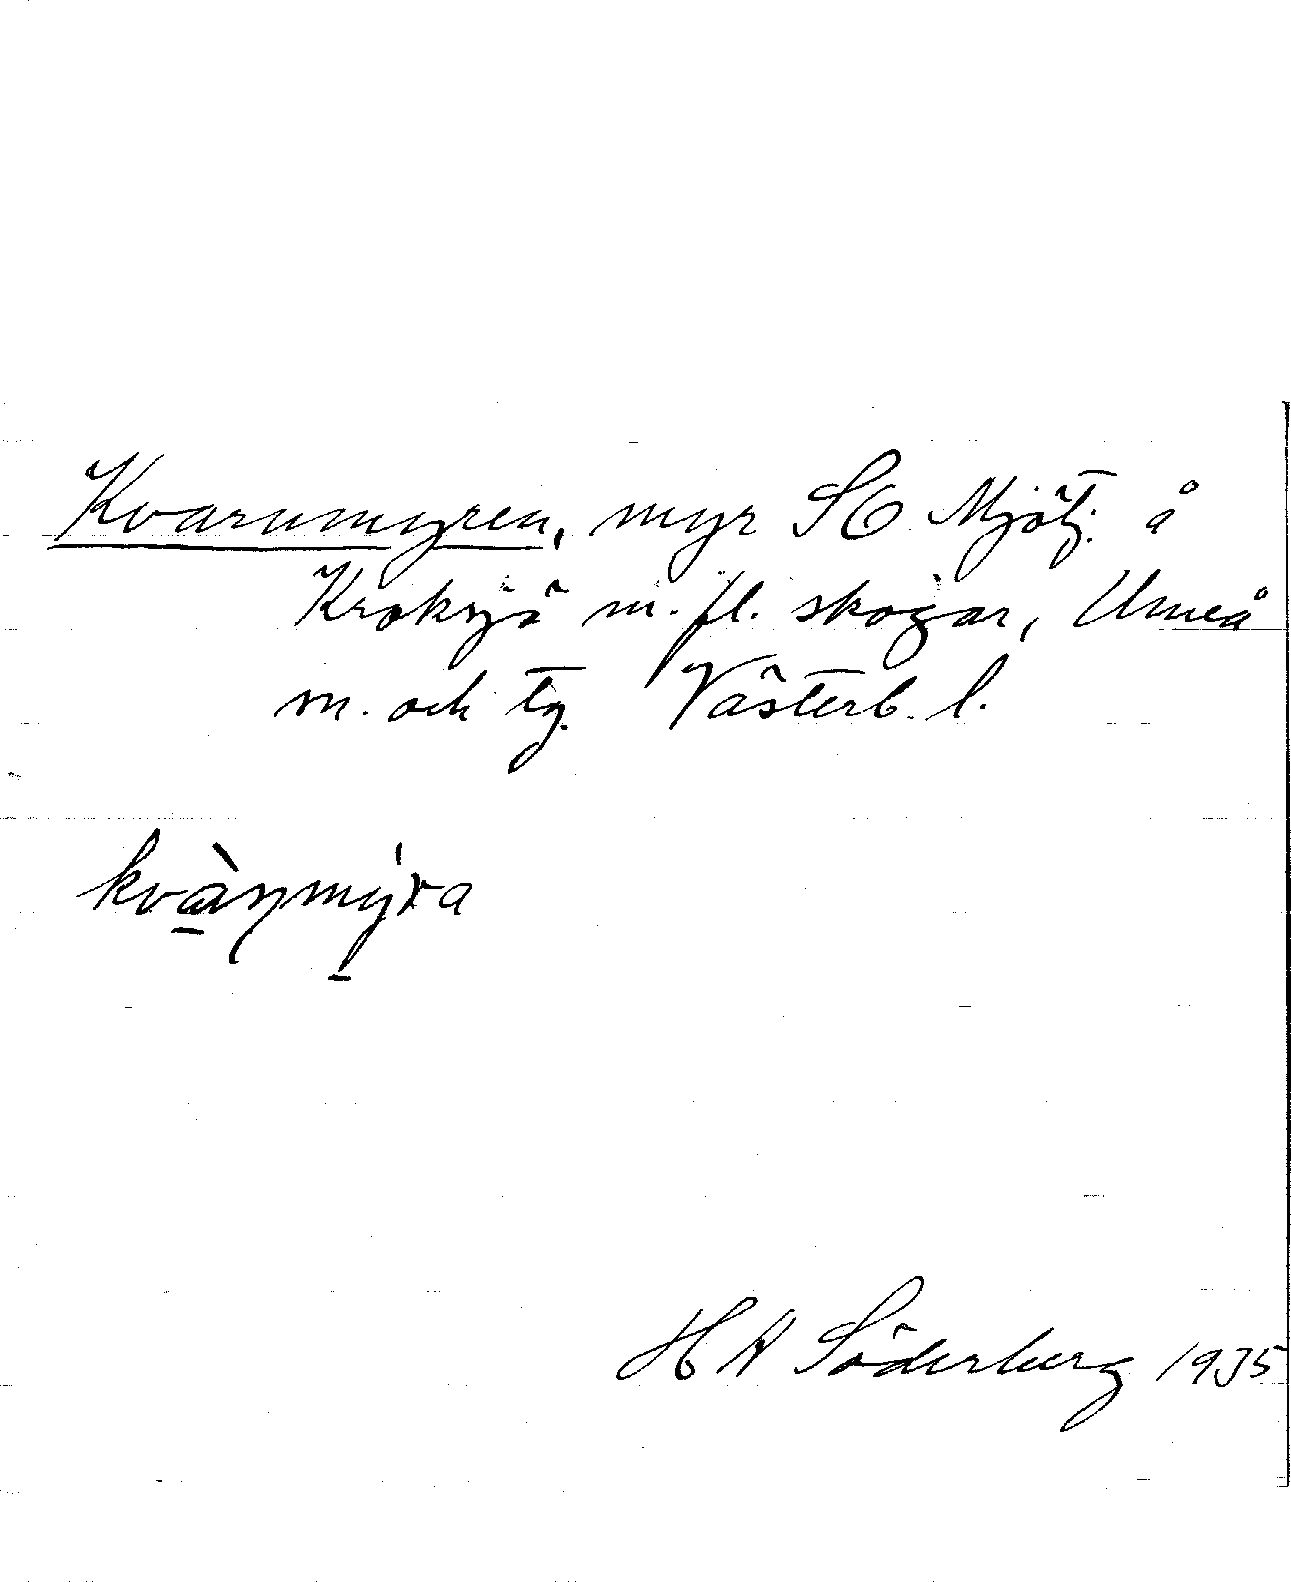 Kvarnmyren, myr SO Mjötj. å
Kroksjö m. fl. skogar, Umeå
m. och tg. Västerb. l.
kvàɳmýra
H A Söderberg 1935